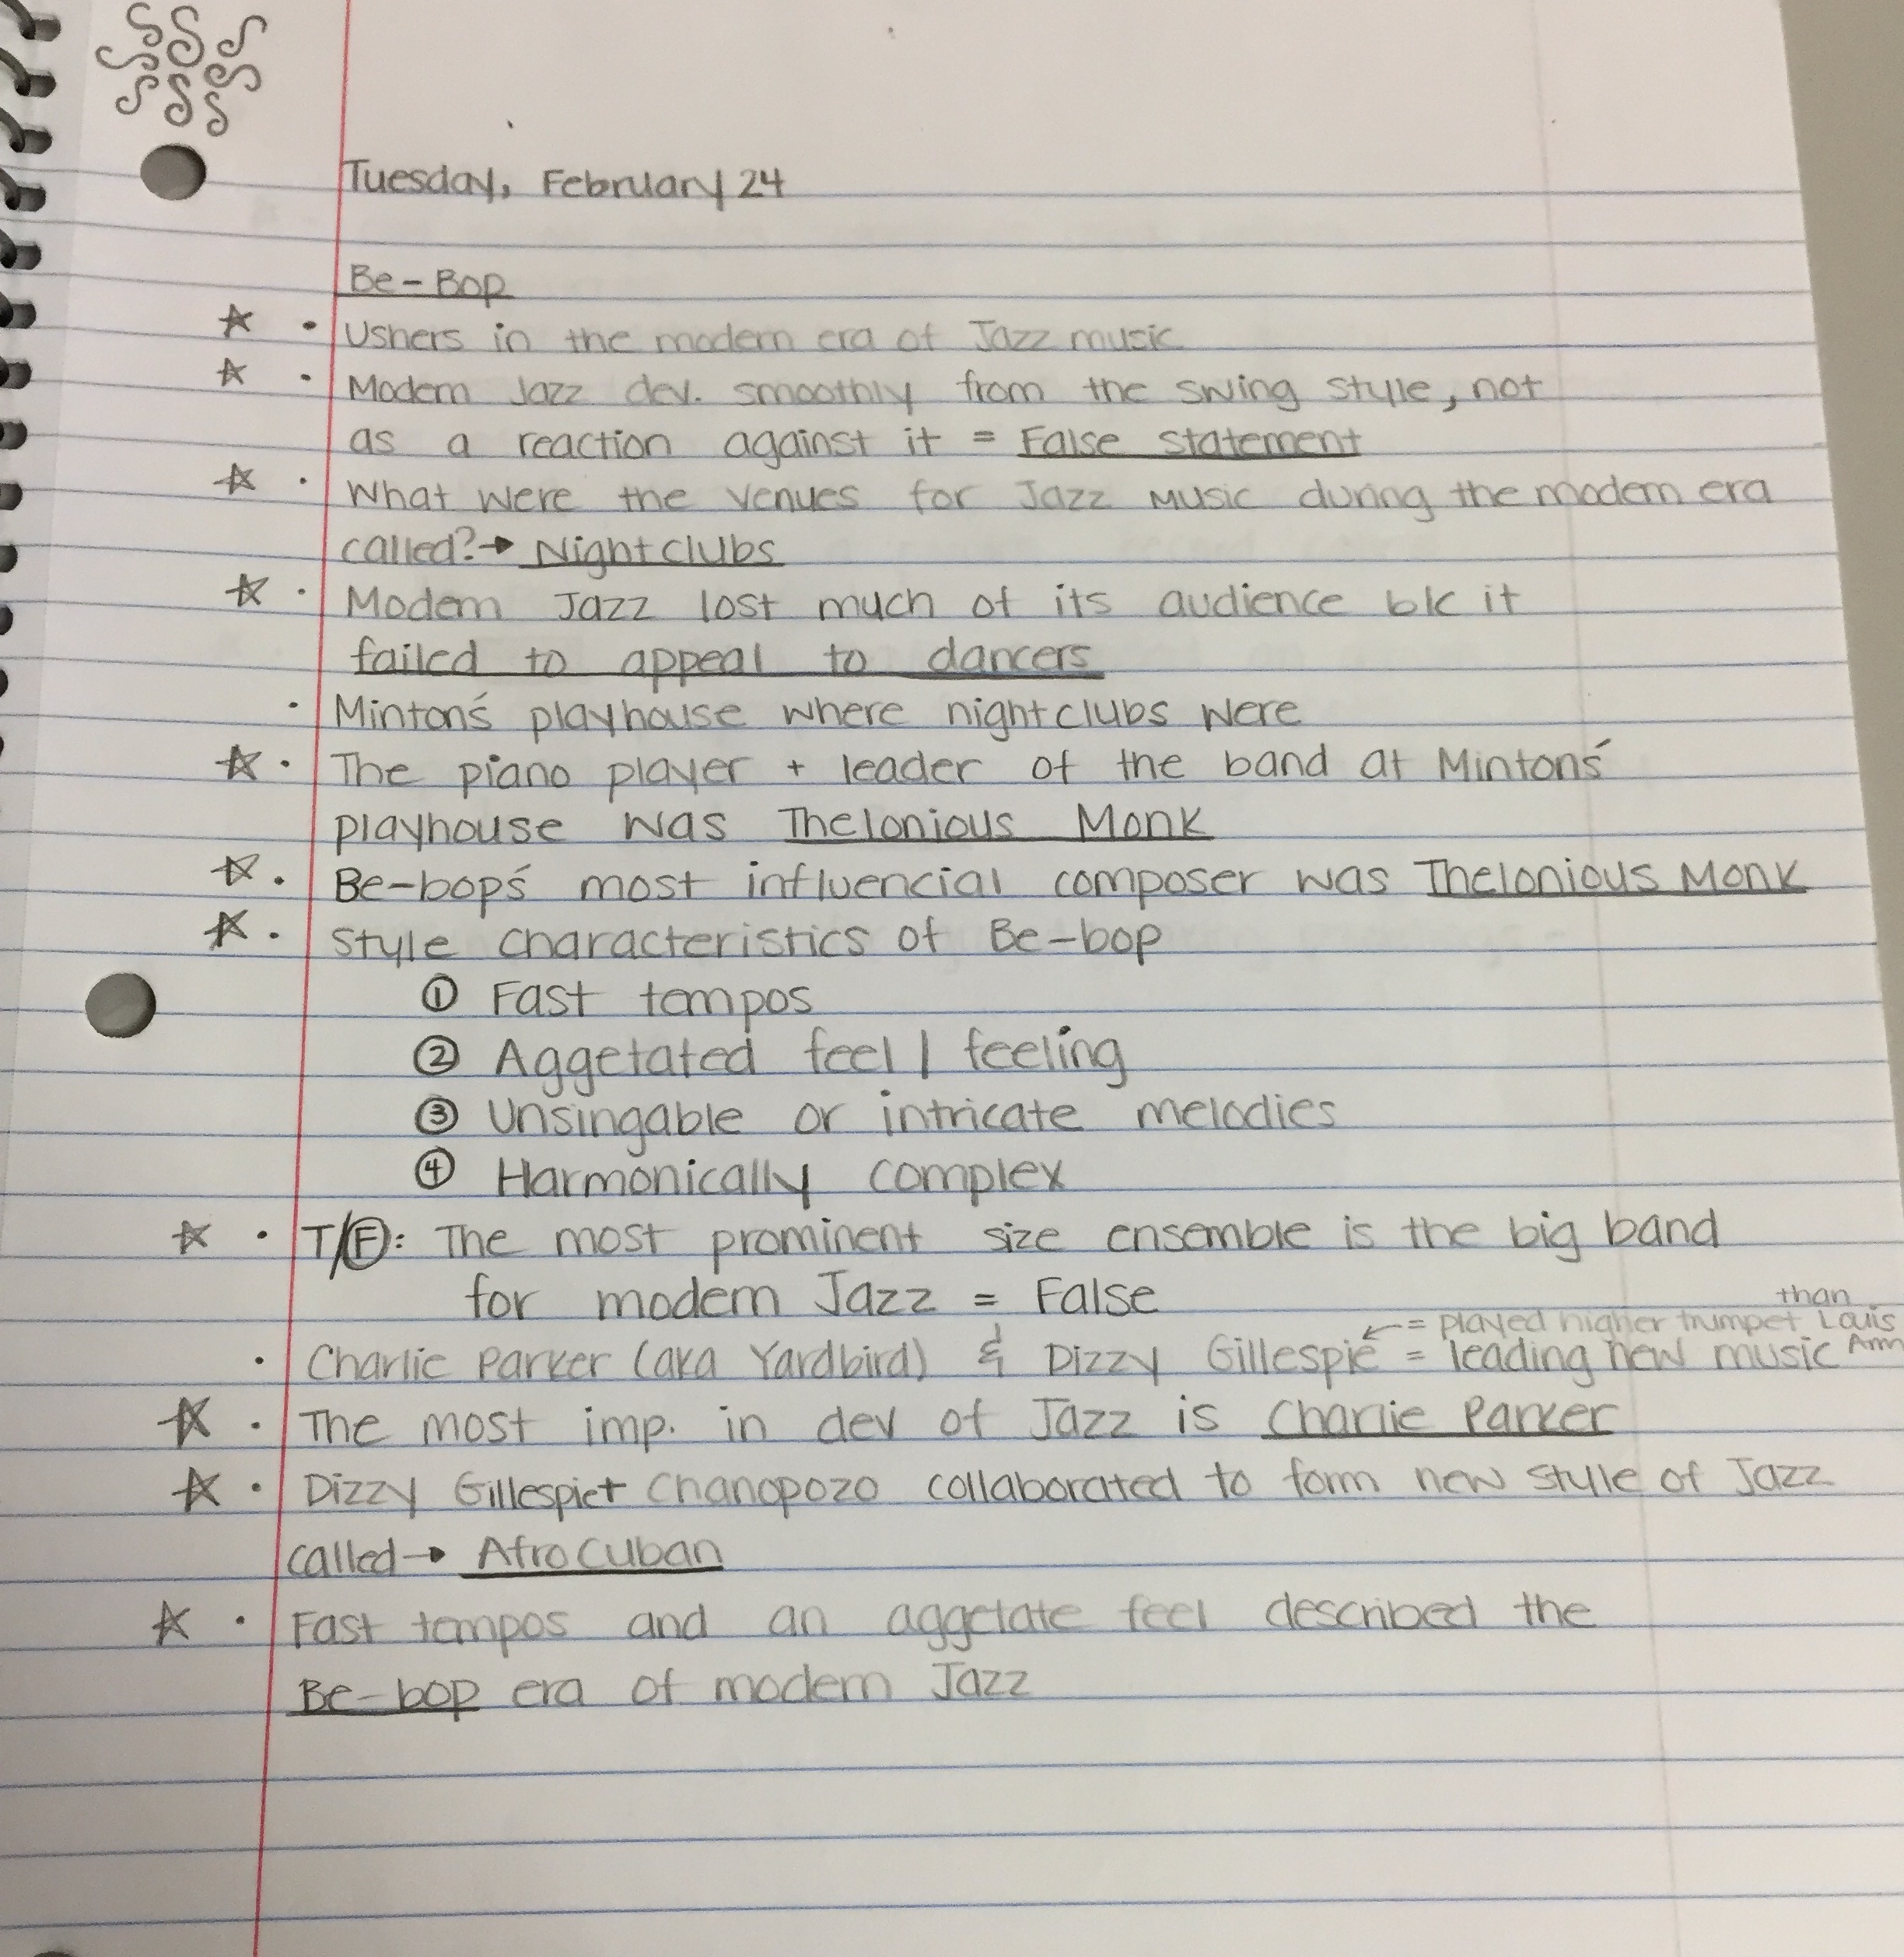 Tuesday, February 24
Be-Bop
☆ • Ushers in the modern era of Jazz music
☆ • Modern Jazz dev. smoothly from the swing style, not
as a reaction against it = False statement
☆ • What were the venues for Jazz music during the modern era
called? → Nightclubs
☆ • Modern Jazz lost much of its audience b/c it
failed to appeal to dancers
• Minton's playhouse where nightclubs were
☆ • The piano player + leader of the band at Mintons'
playhouse was Thelonious Monk
☆ • Be-bop's most influencial composer was Thelonious Monk
☆ • Style characteristics of Be-bop
① Fast tempos
② Aggetated feel / feeling
③ Unsingable or intricate melodies
④ Harmonically complex
☆ • T/F: The most prominent size ensemble is the big band
for modern Jazz = False
than
← = played higher trumpet Louis
• Charlie Parker (aka Yardbird) & Dizzy Gillespie = leading new music Arm
☆ • The most imp. in dev of Jazz is Charlie Parker
☆ • Dizzy Gillespie + Chanopozo collaborated to form new style of Jazz
called → Afrocuban
☆ • Fast tempos and an aggetate feel described the
Be-bop era of modern Jazz